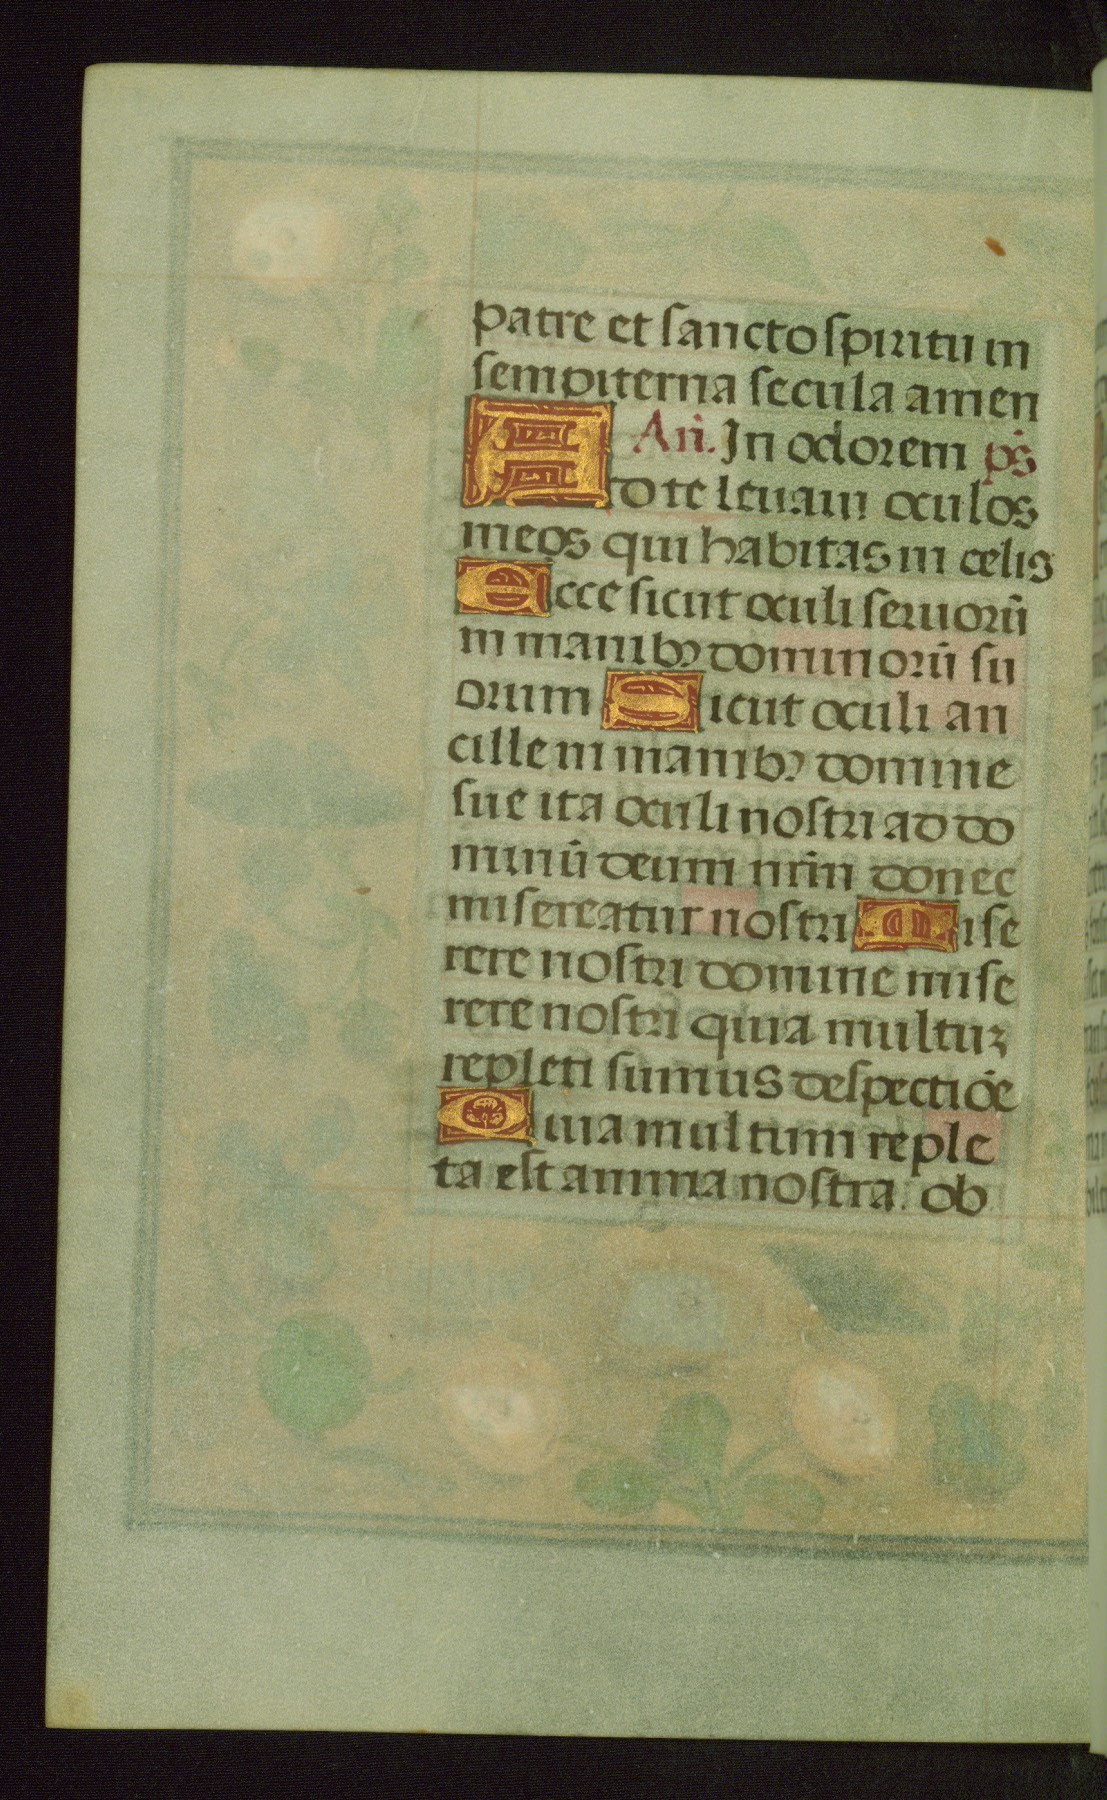 patre et sancto spiritu in
sempiterna secula amen
An̄. In odorem ps̄
Ad te leuaui oculos
meos qui habitas in celis
Ecce sicut oculi seruorū
in manibꝫ dominorū su
orum Sicut oculi an
cille in manibꝫ domine
sue ita oculi nostri ad do
minū deum nr̄m donec
misereatur nostri Mise
rere nostri domine mise
rere nostri quia multuꝫ
repleti sumus despectiōe
Quia multum reple
ta est anima nostra. ob